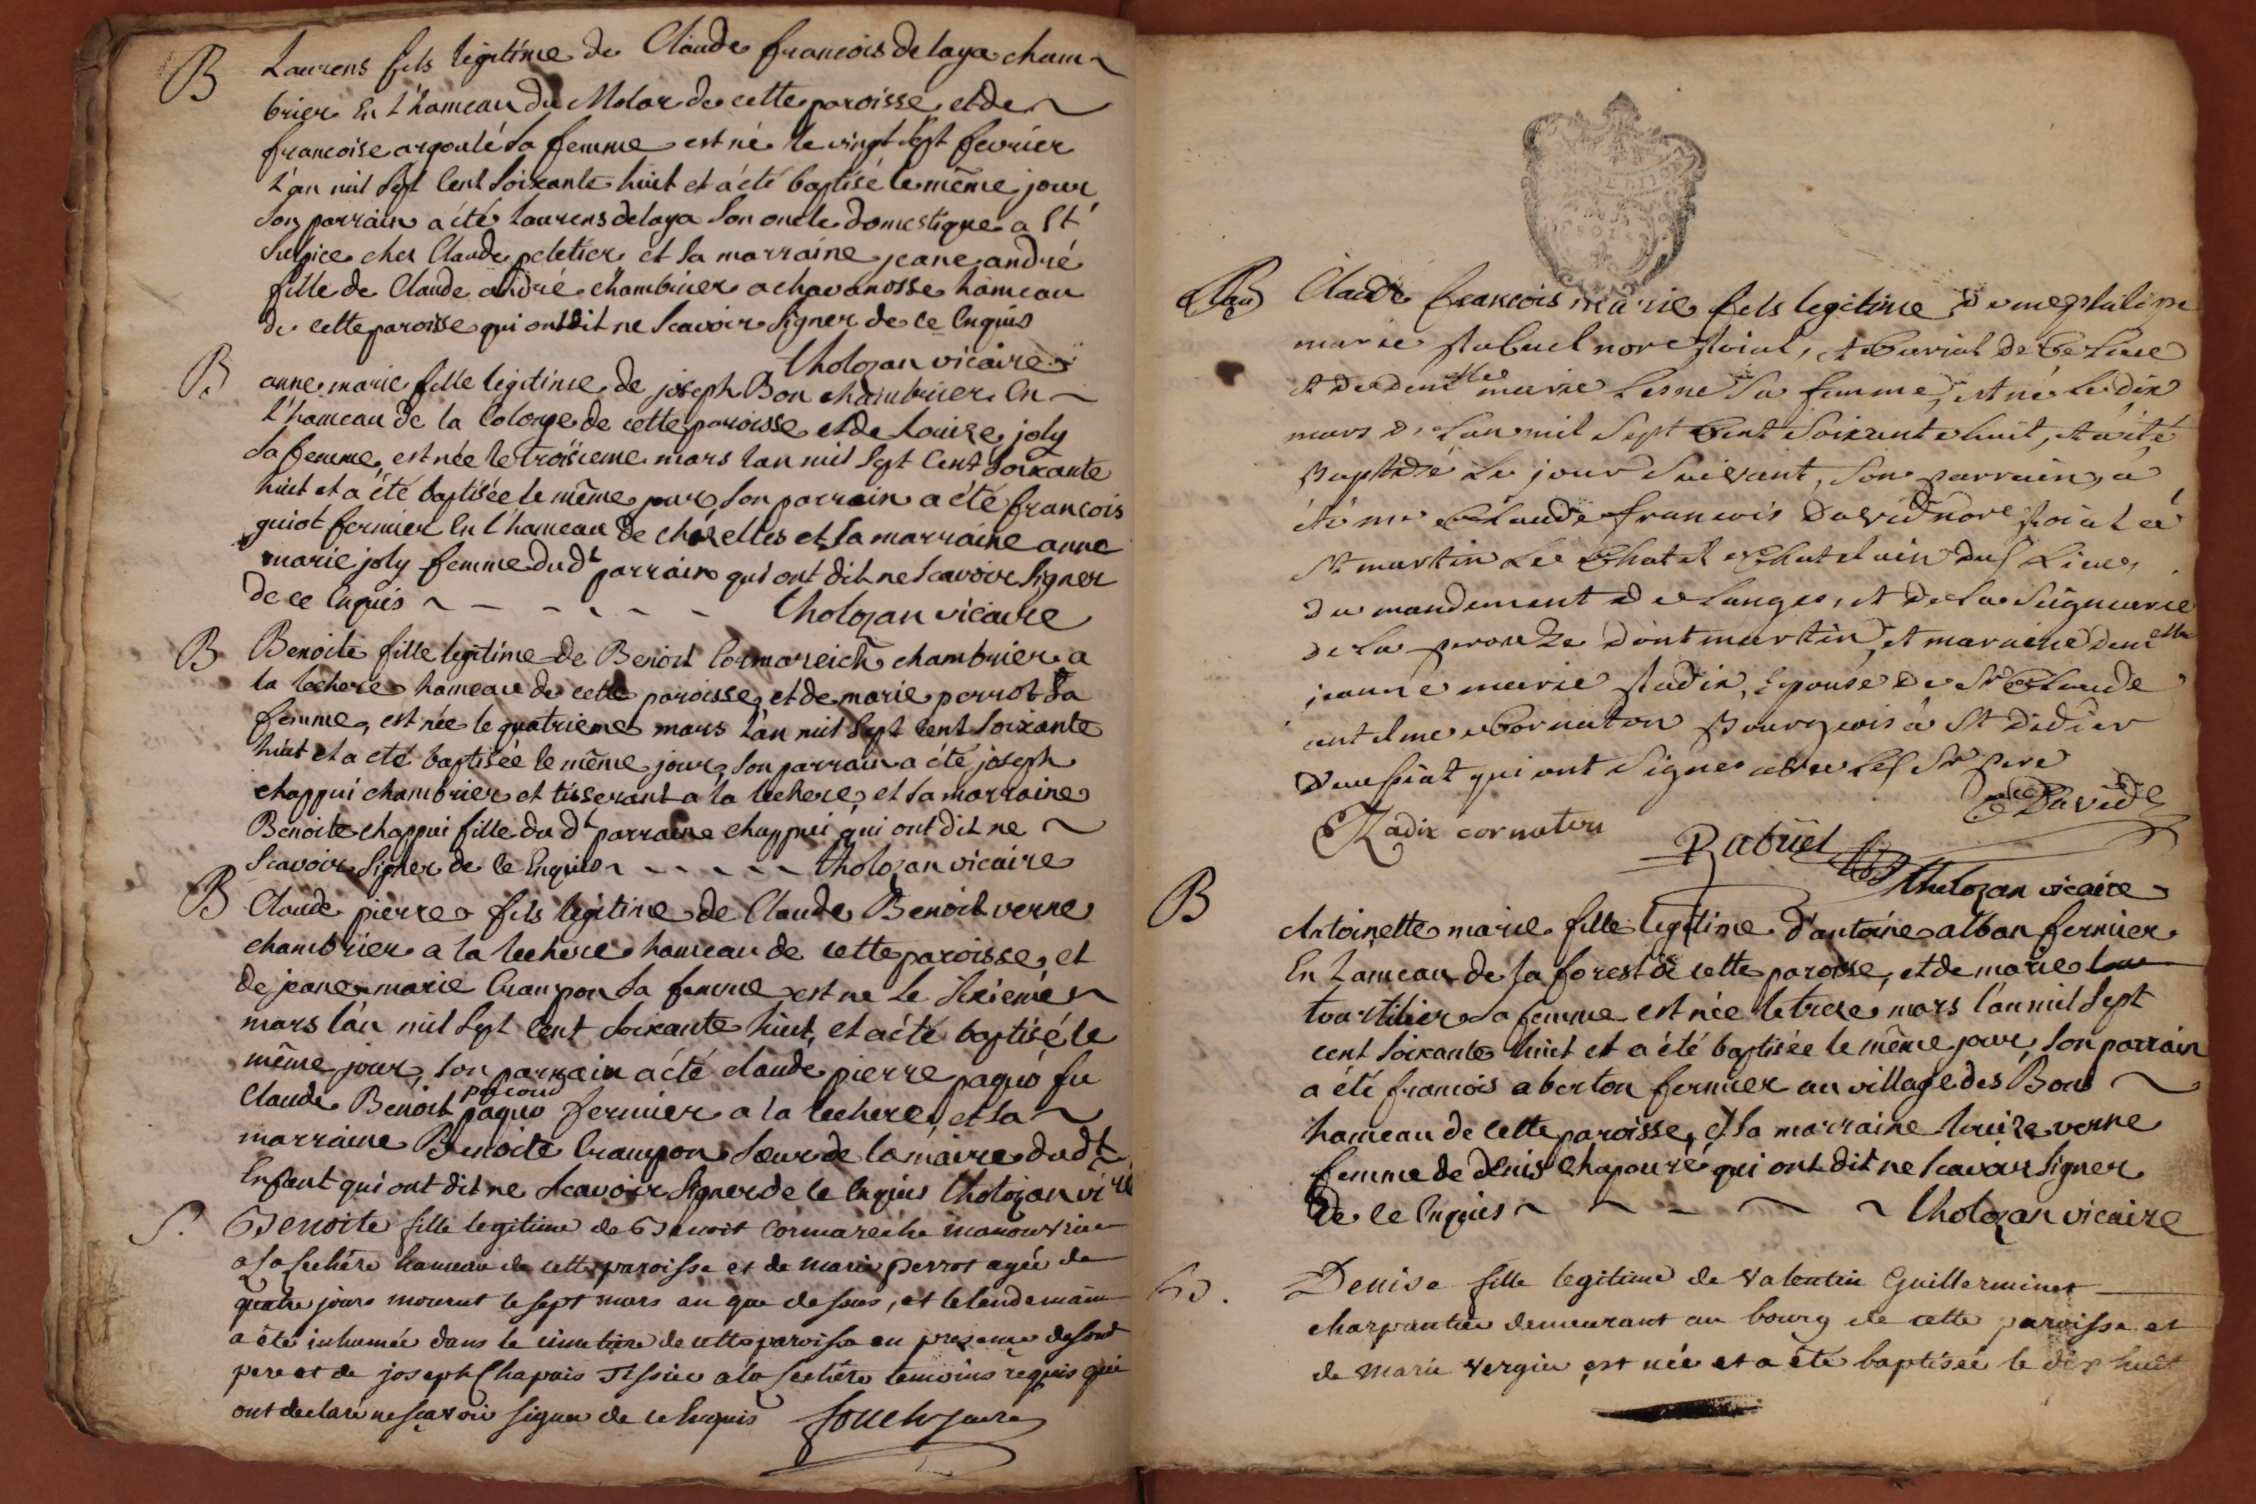 B Laurens fils legitime de Claude francois delaya cham-
brier En l'hameau du Molar de cette paroisse et de
francoise argoulé sa femme est né le vingt sept fevrier
l'an mil sept cent soixante huit et a été baptisé le même jour
son parrain a été laurens delaya son oncle domestique a St
Sulpice ches Claude peletier et sa marraine jeane andré
fille de Claude andré chambrier a chavanosse hameau
de cette paroisse qui ont dit ne scavoir signer de ce Enquis
tholozan vicaire
B. anne marie fille legitime de joseph Bon chambrier En
l'hameau de la Colonge de cette paroisse et de Louize joly
sa femme, est née le troisieme mars lan mil sept cent soixante
huit et a été baptisée le même jour, son parrain a été francois
guiot fermier En l'hameau de chézelles et sa marraine anne
marie joly femme du dt parrain qui ont dit ne scavoir signer
de ce Enquis tholozan vicaire
B Benoite fille legitime de Benoit Cormareich chambrier a
la lechere hameau de cette paroisse, et de marie perrot sa
femme, est née le quatrieme mars l'an mil sept cent soixante
huit et a été baptisée le même jour, son parrain a été joseph
chappui chambrier et tisserant a la lechere, et sa marraine
Benoite chappui fille du dt parrain chappui qui ont dit ne
scavoir signer de ce Enquis tholozan vicaire
B Claude pierre fils legitime de Claude Benoit verne
chambrier a la lechere hameau de cette paroisse, et
de jeane marie Crampon sa femme est né le sixieme
mars l'an mil sept cent soixante huit, et a été baptisé le
même jour, son parrain a été claude pierre paquo fu
Claude Benoit paquo fermier a la lechere, et sa
marraine Benoite Crampon sœur de la maire du dt
Enfant qui ont dit ne scavoir signer de ce Enquis tholozan vire
S. Benoite fille legitime de Benoit Cormareche manouvrier
a la Lechère hameau de cette paroisse et de marie perrot agée de
quatre jours mourut le sept mars an que dessus, et le lendemain
a été inhumée dans le cimetière de cette paroisse en presence desond
pere et de joseph Chapuis Tissier a la Lechère temoins requis qui
ont declaré ne sçavoir signer de ce Enquis
B Claude francois marie fils legitime de me philippe
marie Rabuel nore Roial, et Curial de ce Lieu
et de demelle marie Lesne sa femme, est né le dix
mars de Lan mil sept Cent soixante huit, et a été
Baptisé Le jour suivant, son parrain, a
été me Claude francois David nore Roial à
St martin Le Chatel Chatelain duf Lieu,
du mandement de Langes, et de la Seigneurie
de La perouze dont martin, et maraine demelle
jeanne marie Radix, Epouse de Sr Claude
antelme Cornaton Bourgeois à St didier
daussiat qui ont signés avec Lef Sr pere
David
Radix cornaton Rabuel
tholozan vicaire
B Antoinette marie fille legitime d'antoine alban fermier
En hameau de la forest de cette paroisse, et de marie
tourtilier sa femme est née le treze mars l'an mil sept
cent soixante huit et a été baptisée le même jour, son parrain
a été francois aberton fermier au village des Bons
hameau de cette paroisse, et sa marraine louize verne
femme de denis chapouré qui ont dit ne scavoir signer
de ce Enquis tholozan vicaire
B. Denise fille legitime de Valentin Guillerminet
charpantier demeurant au bourg de cette paroisse et
de Marie Vergin, est née et a été baptisée le dix huit